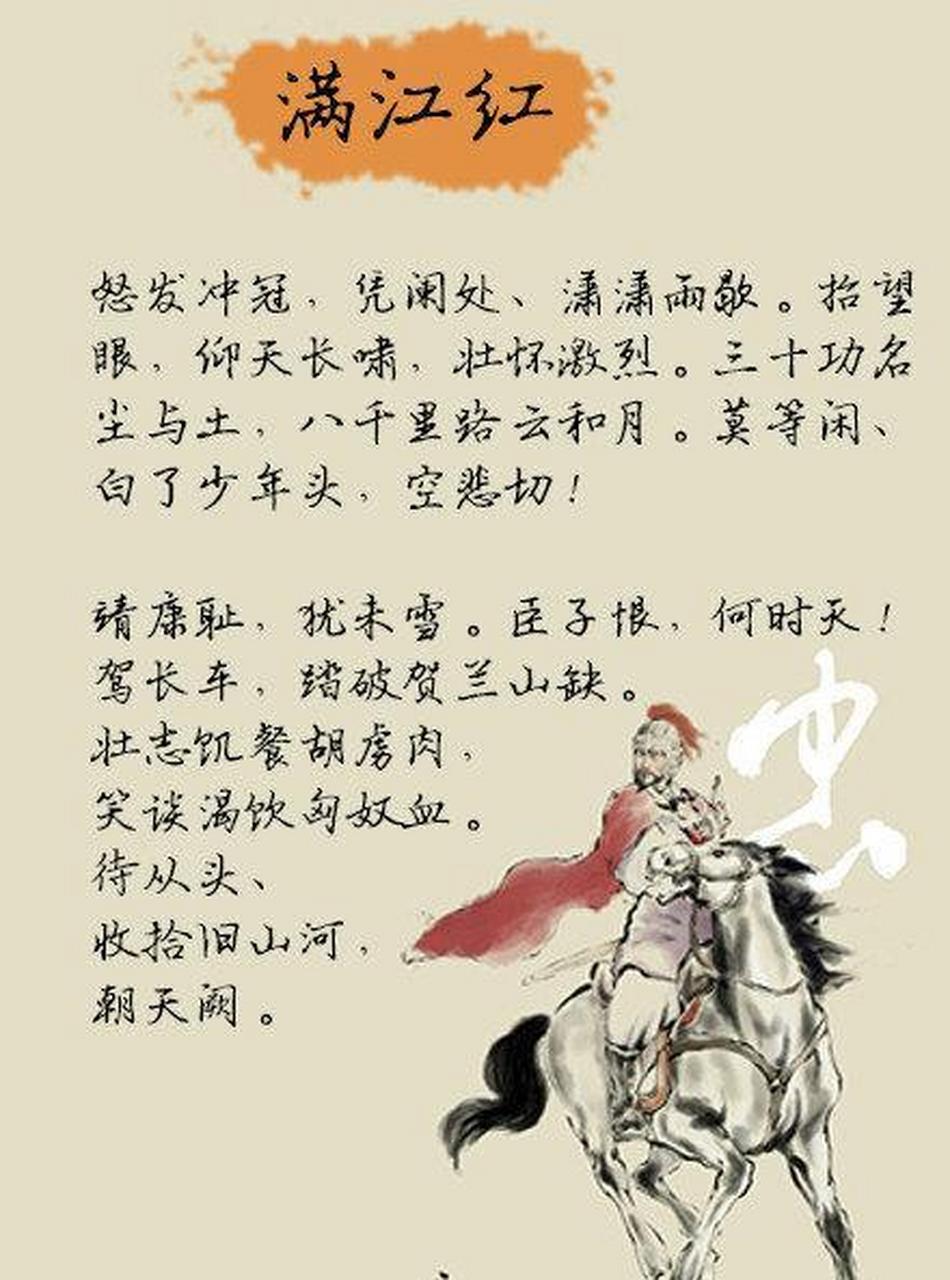 满江红
怒发冲冠，凭阑处、潇潇雨歇。抬望
眼，仰天长啸，壮怀激烈。三十功名
尘与土，八千里路云和月。莫等闲、
白了少年头，空悲切！
靖康耻，犹未雪。臣子恨，何时灭！
驾长车，踏破贺兰山缺。
壮志饥餐胡虏肉，
笑谈渴饮匈奴血。
待从头、
收拾旧山河，
朝天阙。
忠